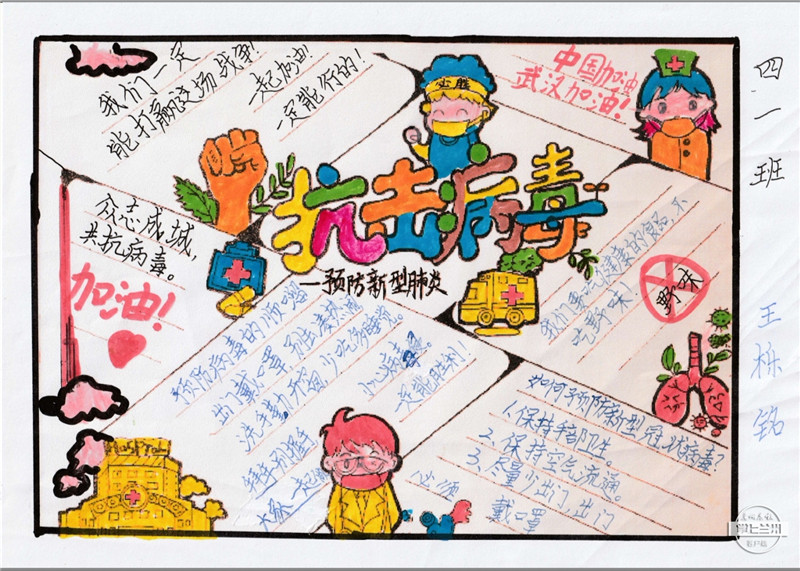 我们一定
能打赢这场战争!
一起加油!
一定能行的!
必胜
中国加油
武汉加油!
四一班
王栎铭
众志成城,
共抗病毒。
加油!
抗击病毒
一预防新型肺炎
我们要吃健康的食品,不
吃野味!
野味
预防病毒的顺口溜
出门戴口罩,别去凑热闹。
洗手勤开窗,少吃
一定能胜利!
大家一起
必须
如何预防新型冠状病毒?
1.保持手部卫生。
2.保持空气流通。
3.尽量少出门,出门
戴口罩